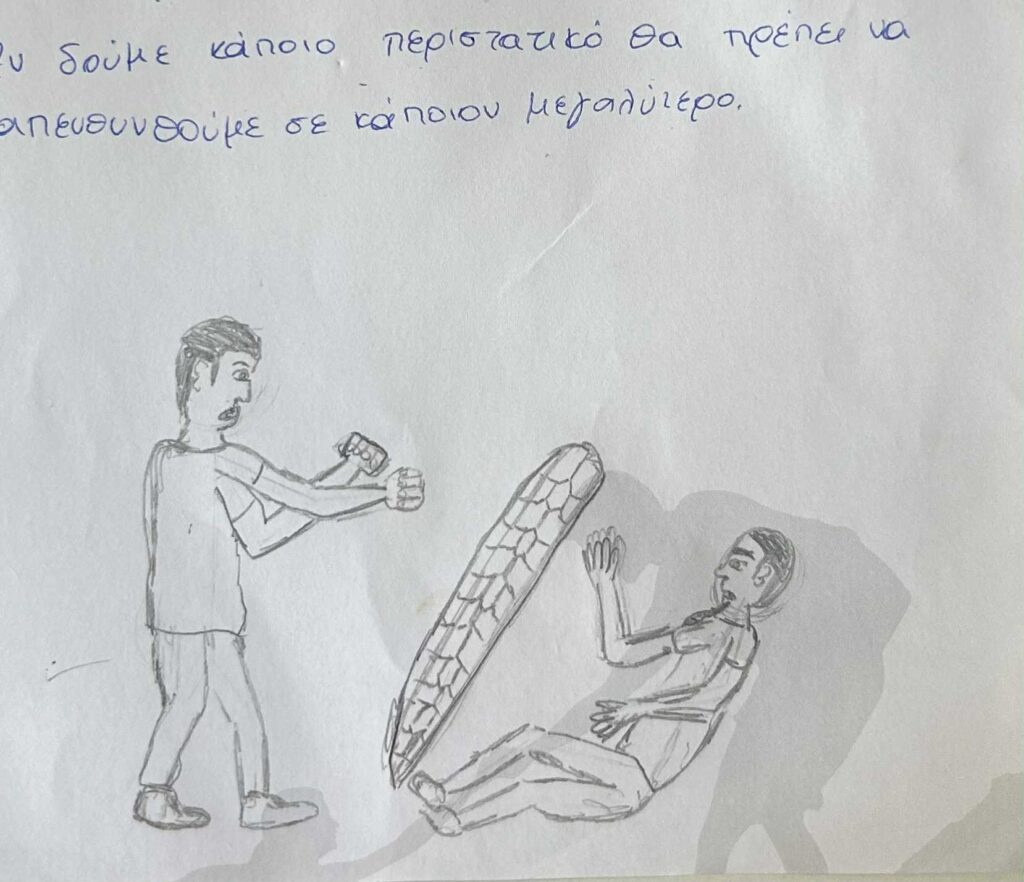 δούμε κάποιο περιστατικό θα πρέπει να
απευθυνθούμε σε κάποιον μεγαλύτερο.